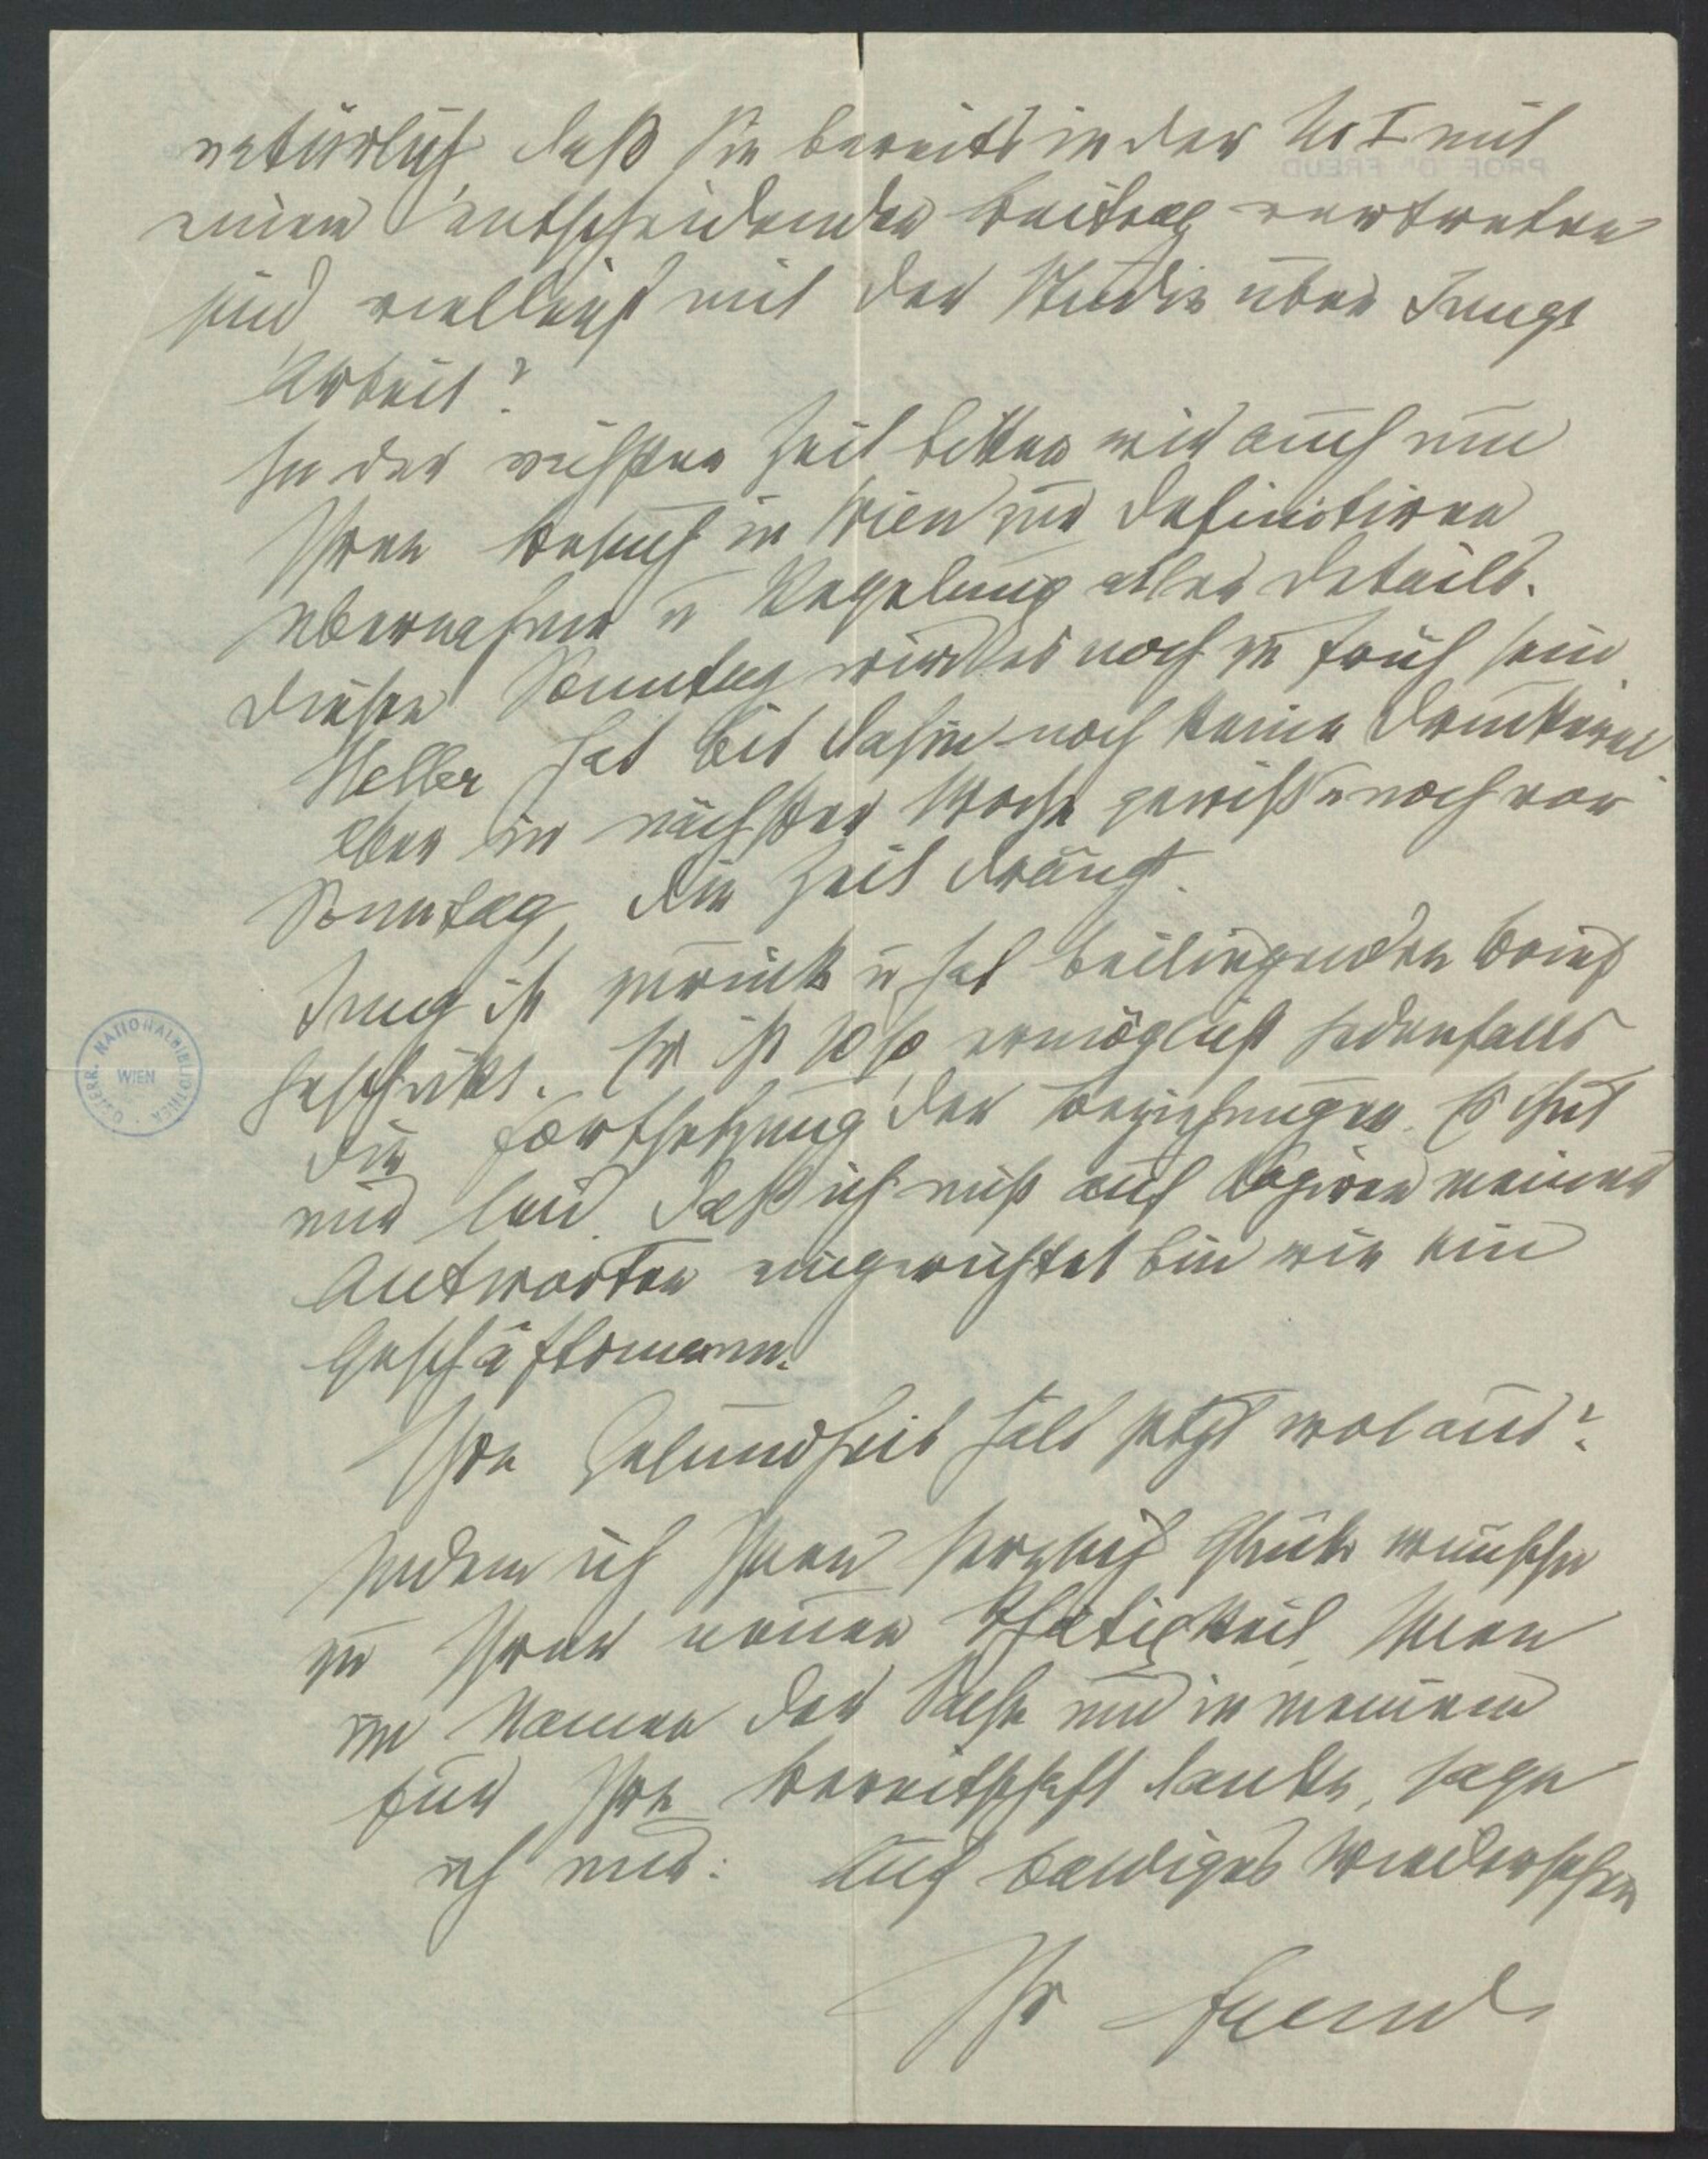 natürlich, daß Sie bereits in der No I mit
einem entscheidenden Beitrag vertreten
sind, vielleicht mit der Studie über Jungs
Arbeit?
In der nächsten Zeit bitten wir auch um
Ihren Besuch in Wien zur definitiven
Übernahme u Regelung aller Details.
Diesen Sonntag wird es noch zu früh sein,
Heller hat bis dahin noch keine Druckerei
aber in nächster Woche gewiß u noch vor
Sonntag, die Zeit drängt.
Jung ist zurück u hat beiliegenden Brief
geschickt. Er ist so so, ermöglicht jedenfalls
die Fortsetzung der Beziehungen. Es thut
mir leid, daß ich nicht auf Copiren meiner
Antworten eingerichtet bin wie ein
Geschäftsmann.
Ihre Gesundheit hält jetzt wol aus?
Indem ich Ihnen herzlich Glück wünsche
zu Ihrer neuen Thätigkeit, Ihnen
im Namen der Sache und in meinem
für Ihre Bereitschaft danke, sage
ich nur: Auf baldiges Wiedersehen
Ihr Freud
PROF. DR FREUD
ÖSTERR. NATIONALBIBLIOTHEK
WIEN